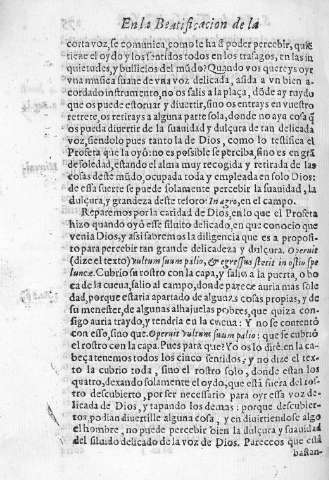 En la Beatificacion de la
corta voz, se comunica, como le ha d̃ poder percebir, quiẽ
tiene el oydo y los sentidos todos en los trafagos, en las in
quietudes, y bullicios del mũdo? Quando vos quereys oyr
vna musica suaue de vna voz delicada, asida a vn bien a-
cordado instrumento, no os salis a la plaça, dõde ay ruydo
que os puede estoruar y diuertir, sino os entrays en vuestro
retrete, os retirays a alguna parte sola, donde no aya cosa q̃
os pueda diuertir de la suauidad y dulçura de tan delicada
voz, siendolo pues tanto la de Dios, como lo testifica el
Profeta que la oyò: no es possible se perciba, sino es en grã
de soledad, estando el alma muy recogida y retirada de las
cosas deste mũdo, ocupada toda y empleada en solo Dios:
de essa suerte se puede solamente percebir la suauidad, la
dulçura, y grandeza deste tesoro: In agro, en el campo.
Reparemos por la caridad de Dios, en lo que el Profeta
hizo quando oyó esse siluito delicado, en que conocio que
venia Dios, y assi sabremos la diligencia que es a proposi-
to para percebir tan grande delicadeza y dulçura. Operuit
(dize el texto) vultum suum palio, & egressus stetit in ostio spe
luncæ. Cubrio su rostro con la capa, y salio a la puerta, o bo
ca de la cueua, salio al campo, donde parece auria mas sole
dad, porque estaria apartado de algunas cosas propias, y de
su menester, de algunas alhajuelas pobres, que quiza con-
sigo auria traydo, y tendria en la cueua: Y no se contentó
con esso, sino que. Operuit vultum suum palio: que se cubriò
el rostro con la capa. Pues para que? Yo os lo dirè. en la ca-
beça tenemos todos los cinco sentidos, y no dize el tex-
to la cubrio toda, sino el rostro solo, donde estan los
quatro, dexando solamente el oydo, que està fuera del ros-
tro descubierto, por ser necessario para oyr essa voz de-
licada de Dios, y tapando los demas: porque descubier-
tos, podian diuertille alguna cosa, y en diuirtiendose algo
el hombre, no puede percebir bien la dulçura y suauidad
del siluido delicado de la voz de Dios. Pareceos que està
bastan-